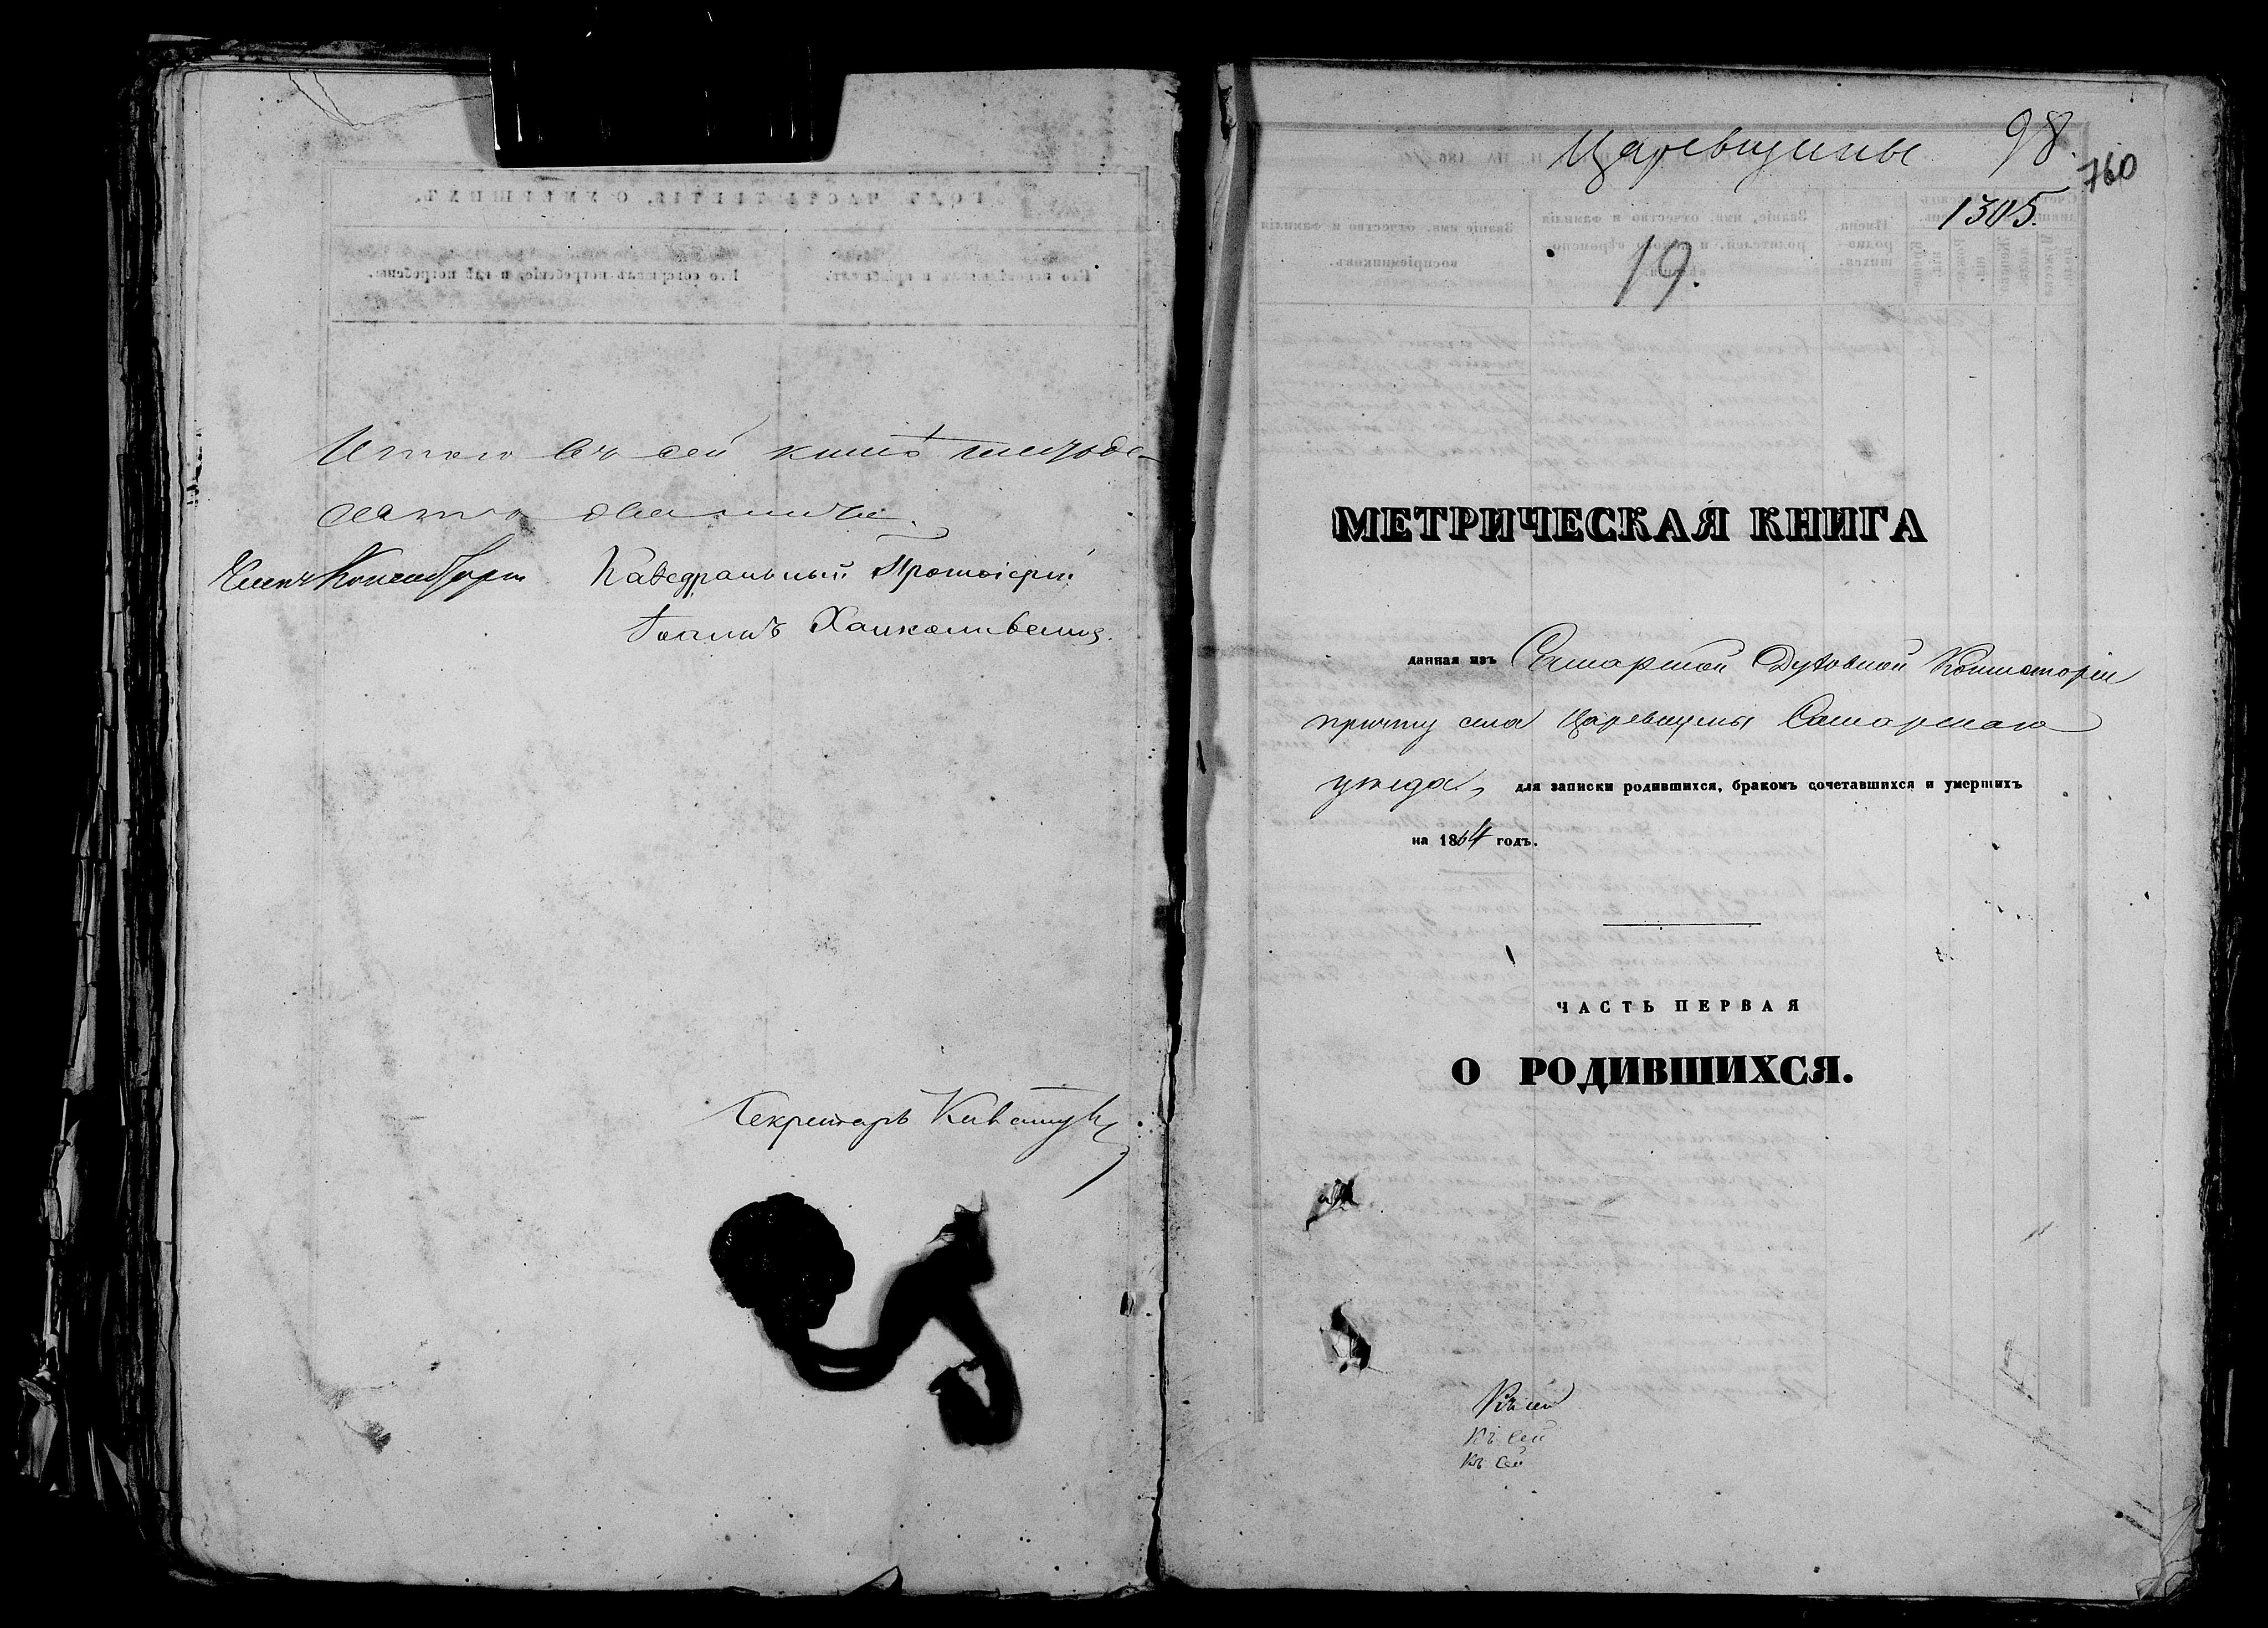 Итого въ сей книгѣ шестьде-
сятъ два листа.
Членъ Консисторіи Каѳедральный Протоіерей
Іоаннъ
Секретарь
Царевщины 98.
760
1305.
19.
МЕТРИЧЕСКАЯ КНИГА
данная изъ Самарской Духовной Консисторіи
причту села Царевщины Самарскаго
уѣзда, для записки родившихся, бракомъ сочетавшихся и умершихъ
на 1864 годъ.
ЧАСТЬ ПЕРВАЯ
О РОДИВШИХСЯ.
Къ сей
Къ сей
Къ сей